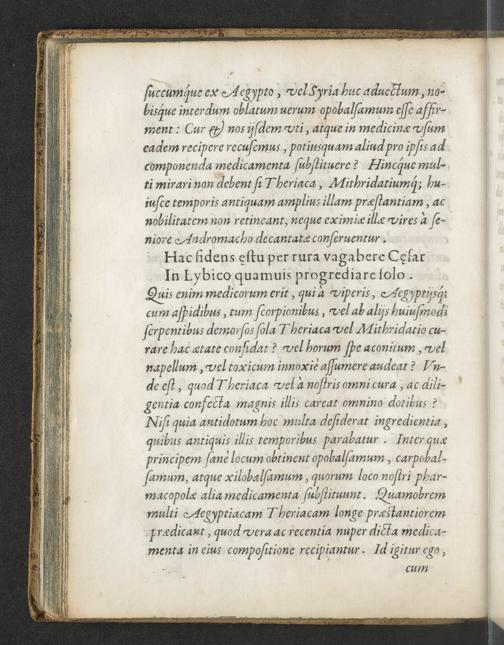 succumq́ue ex Aegypto, vel Syria huc aduectum, no-
bisq́ue interdum oblatum uerum opobalsamum esse affir-
ment: Cur & nos ijsdem vti, atque in medicinæ vsum
eadem recipere recusemus, potiusquam aliud pro ipsis ad
componenda medicamenta substituere? Hincq́ue mul-
ti mirari non debent si Theriaca, Mithridatiumq́; hu-
iusce temporis antiquam amplius illam præstantiam, ac
nobilitatem non retineant, neque eximiæ illæ vires à se-
niore Andromacho decantatæ conseruentur.
Hac fidens ęstu per rura vagabere Cęsar
In Lybico quamuis progrediare solo.
Quis enim medicorum erit, qui à viperis, Aegyptijsq́;
cum aspidibus, tum scorpionibus, vel ab alijs huiusmodi
serpentibus demorsos sola Theriaca vel Mithridatio cu-
rare hac ætate confidat? vel horum spe aconitum, vel
napellum, vel toxicum innoxiè assumere audeat? Vn-
de est, quod Theriaca vel à nostris omni cura, ac dili-
gentia confecta magnis illis careat omnino dotibus?
Nisi quia antidotum hoc multa desiderat ingredientia,
quibus antiquis illis temporibus parabatur. Inter quæ
principem sanè locum obtinent opobalsamum, carpobal-
samum, atque xilobalsamum, quorum loco nostri phar-
macopolæ alia medicamenta substituunt. Quamobrem
multi Aegyptiacam Theriacam longe præstantiorem
prædicant, quod vera ac recentia nuper dicta medica-
menta in eius compositione recipiantur. Id igitur ego,
cum